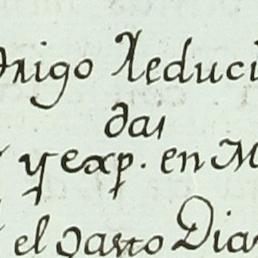 origo Reduci
das
y exp. en M
el gasto Dia